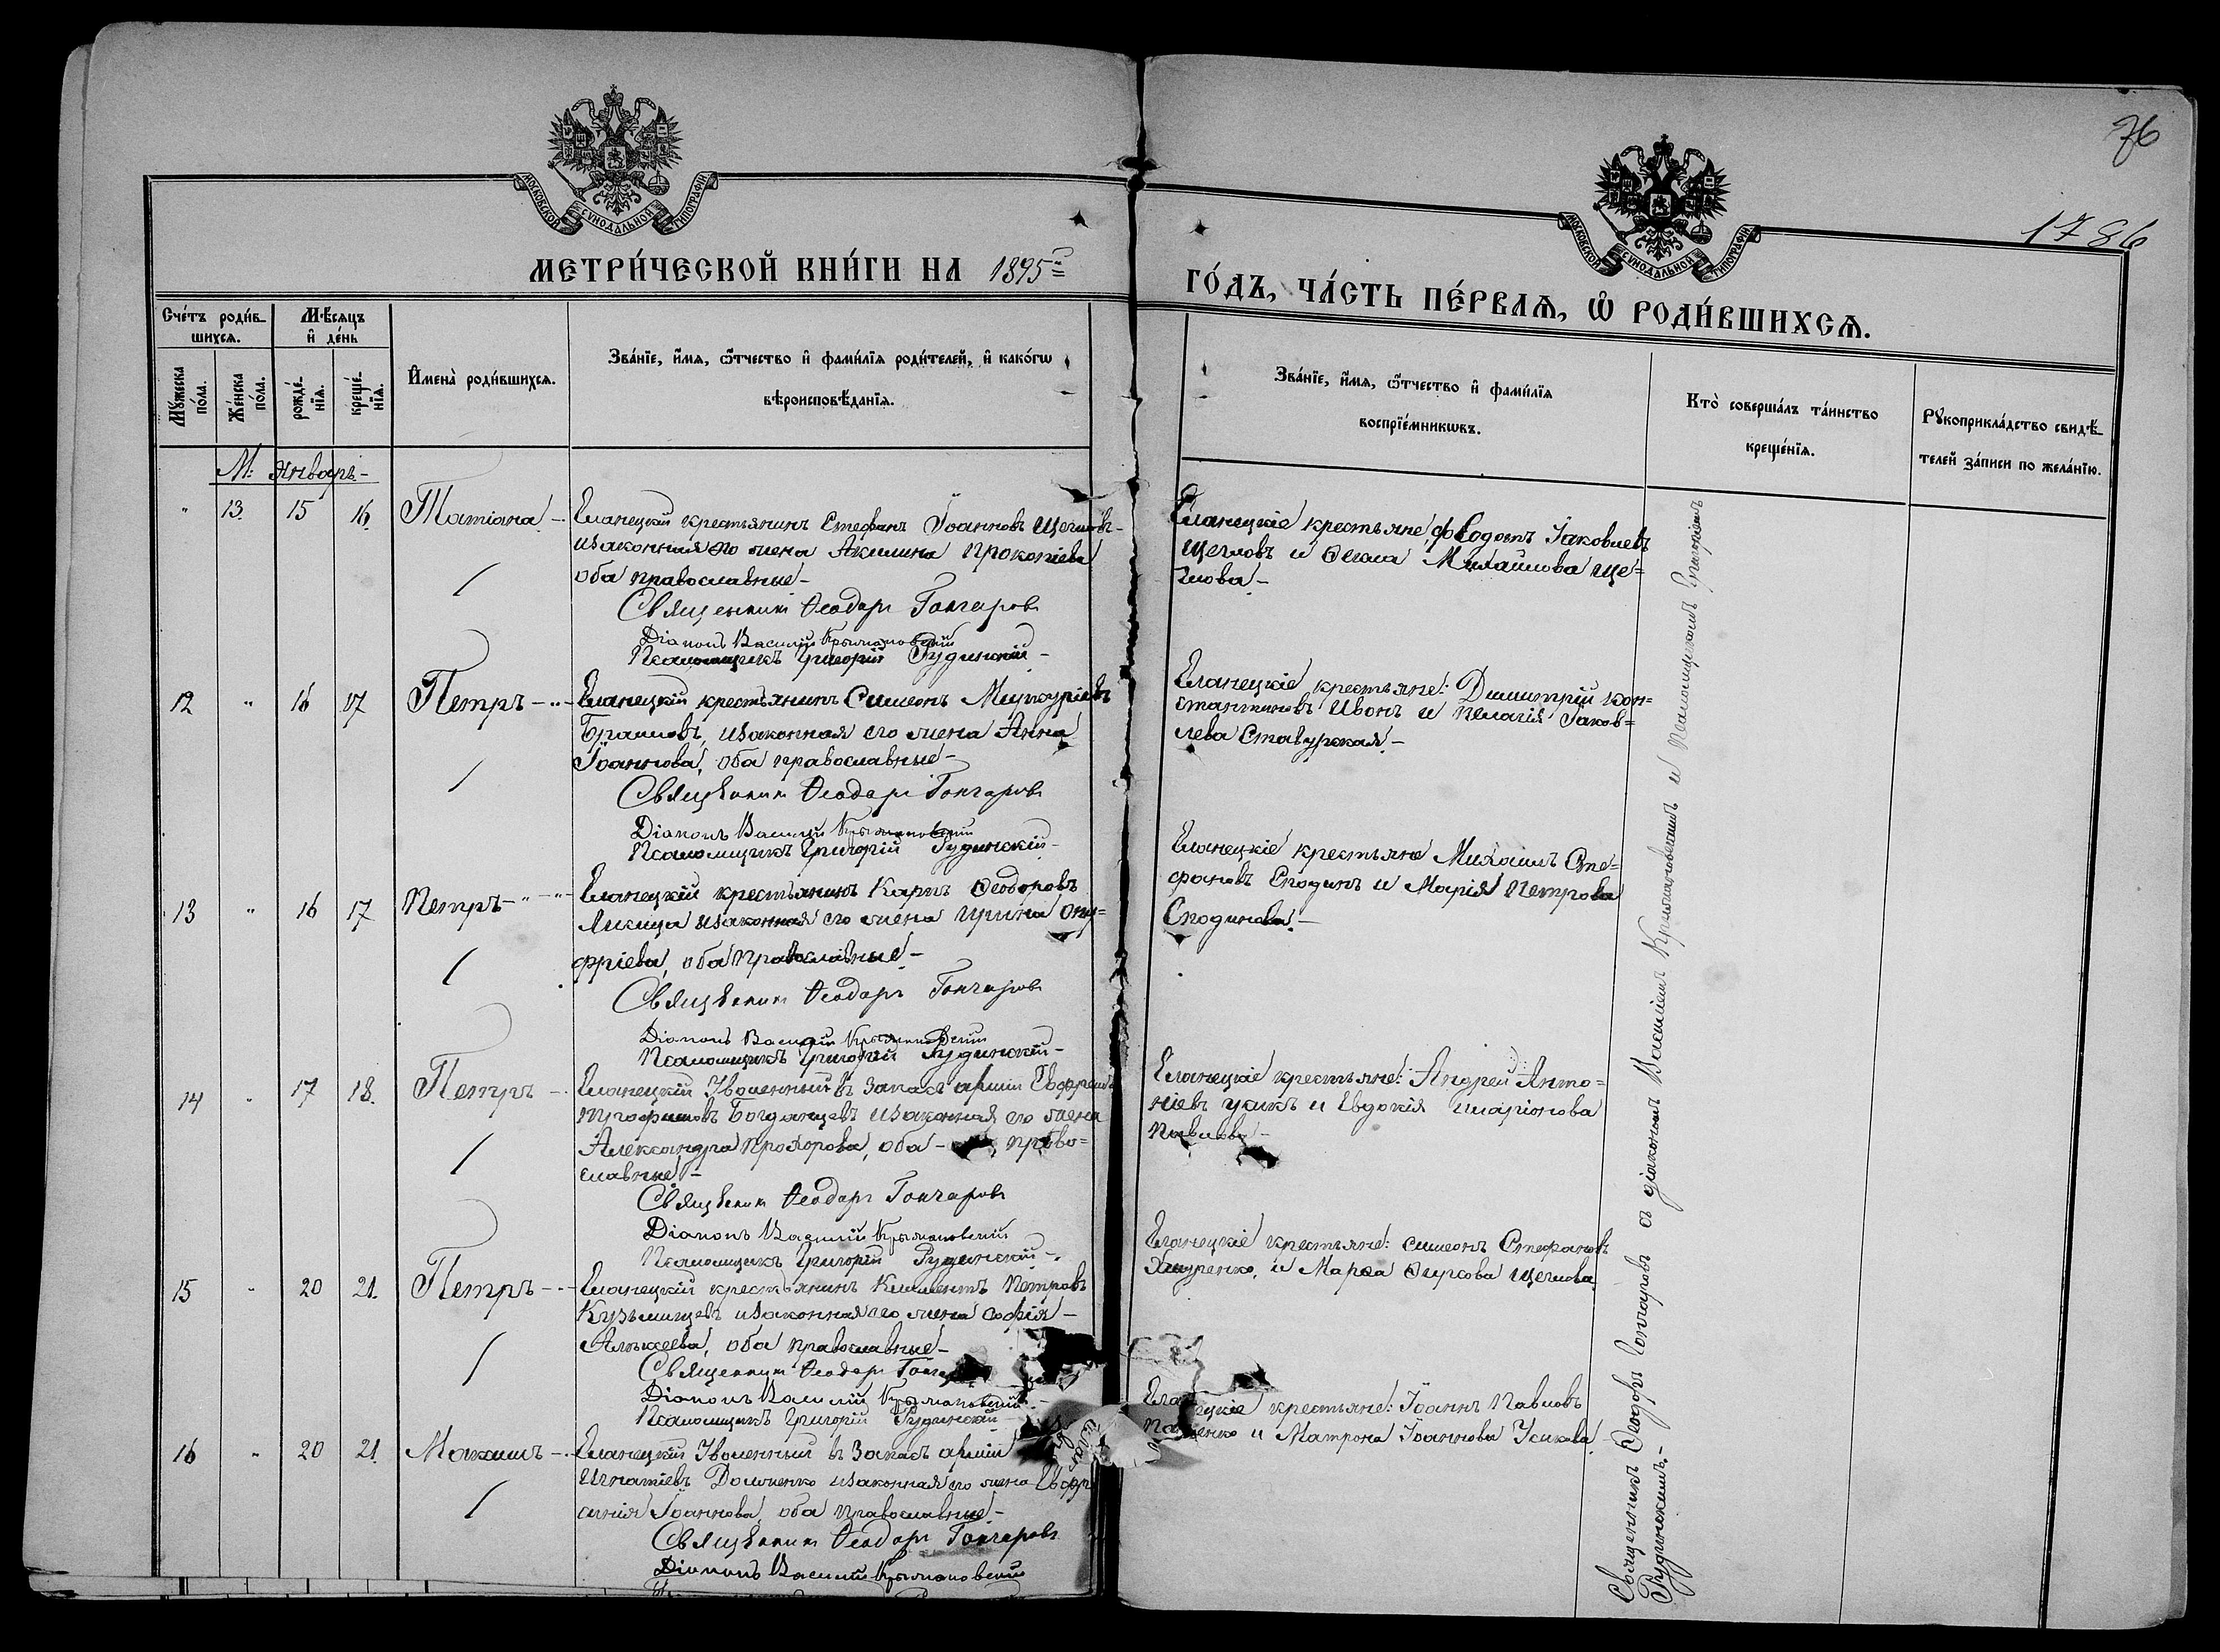 76
1786
МОСКОВСКОЙ СѴНОДАЛЬНОЙ ТИПОГРАФІИ
МОСКОВСКОЙ СѴНОДАЛЬНОЙ ТИПОГРАФІИ
МЕТРИ́ЧЕСКОЙ КНИ́ГИ НА 1895
ГО́ДЪ, ЧА́СТЬ ПЕ́РВАѦ, Ѡ҆ РОДИ́ВШИХСѦ.
Сче́тъ роди́в-
шихсѧ.
Мѣ́сѧцъ
и҆ де́нь
Мꙋ́жеска по́ла.
Же́нска по́ла.
рожде́-
нїѧ.
креще́-
нїѧ.
И҆мена̀ роди́вшихсѧ.
Зва́нїе, и҆́мѧ, ѻ҆́тчество и҆ фами́лїѧ роди́телей, и҆ како́гѡ
вѣроисповѣ́данїѧ.
Зва́нїе, и҆́мѧ, ѻ҆́тчество и҆ фами́лїѧ
воспрїе́мникѡвъ.
Кто̀ соверша́лъ та́инство
креще́нїѧ.
Рꙋкоприкла́дство свидѣ́-
телей за́писи по жела́нїю.
М: Январь-
" 13. 15 16. Татіана - Еланецкій крестьянинъ Стефанъ Іоанновъ Щегловъ-
и законная его жена Акилина Прокопіева
оба православные-
Священникъ Ѳеодоръ Гончаровъ
Діаконъ Василій Крыжановскій
Псаломщикъ Григорій Рудинскій-
Еланецкіе крестьяне, Ѳеодотъ Іаковлевъ
Щегловъ и Ѳекла Михайлова Ще=
глова-
12 " 16 17 Петръ - Еланецкій крестьянинъ Симеонъ Меркуріевъ
Браиловъ, и законная его жена Анна
Іоаннова, оба православные-
Священникъ Ѳеодоръ Гончаровъ
Діаконъ Василій Крыжановскій
Псаломщикъ Григорій Рудинскій-
Еланецкіе крестьяне: Димитрій Кон=
стантиновъ Ивонъ и Пелагія Іаков=
лева Ставурская.-
13 " 16 17 Петръ - Еланецкій крестьянинъ Карпъ Ѳеодоровъ
и законная его жена Ирина Ону=
фріева, оба православные-
Священникъ Ѳеодоръ Гончаровъ
Діаконъ Василій Крыжановскій
Псаломщикъ Григорій Рудинскій-
Еланецкіе крестьяне Михаилъ Сте=
фановъ Сподинъ и Марія Петрова
Сподинова.-
14 " 17 18. Петръ - Еланецкій Уволенный въ запасъ арміи
Трофимовъ Богданцевъ и законная его жена
Александра Прохорова, оба - право=
славные.-
Священникъ Ѳеодоръ Гончаровъ
Діаконъ Василій Крыжановскій
Псаломщикъ Григорій Рудинскій-
Еланецкіе крестьяне: Андрей Анто=
ніевъ Усикъ и Евдокія Иларіонова
Павлова-
15 " 20 21. Петръ - Еланецкій крестьянинъ Климентъ Петровъ
Кузьминцевъ и законная его жена Софія-
Алексеева, оба православные-
Священникъ Ѳеодоръ
Діаконъ Василій Крыжановскій
Псаломщикъ Григорій Рудинскій
Еланецкіе крестьяне: Симеонъ Стефановъ
и Марѳа Щеглова
16 " 20 21. Максимъ - Еланецкій Уволенный въ Запасъ арміи
Игнатіевъ Долженко и законная его жена Евфро
синія Іоаннова, оба православные-
Священникъ Ѳеодоръ Гончаровъ
Діаконъ Василій Крыжановскій
крестьяне: Іоаннъ Павловъ
и Матрона Іоаннова Усикова
Священникъ Ѳеодоръ Гончаровъ съ діакономъ Василіемъ Крыжановскимъ и Псаломщикомъ Григоріемъ
Рудинскимъ.-